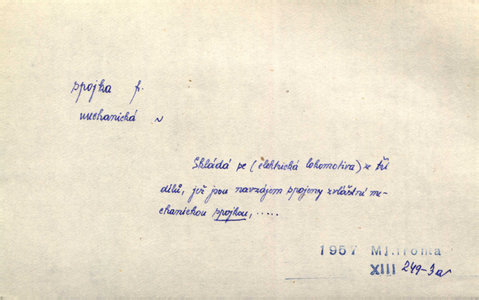 spojka f.
mechanická ~
Skládá se (elektrická lokomotiva) ze tří
dílů, jež jsou navzájem spojeny zvláštní me-
chanickou spojkou, .....
1957 Ml.fronta
XIII 249-3a